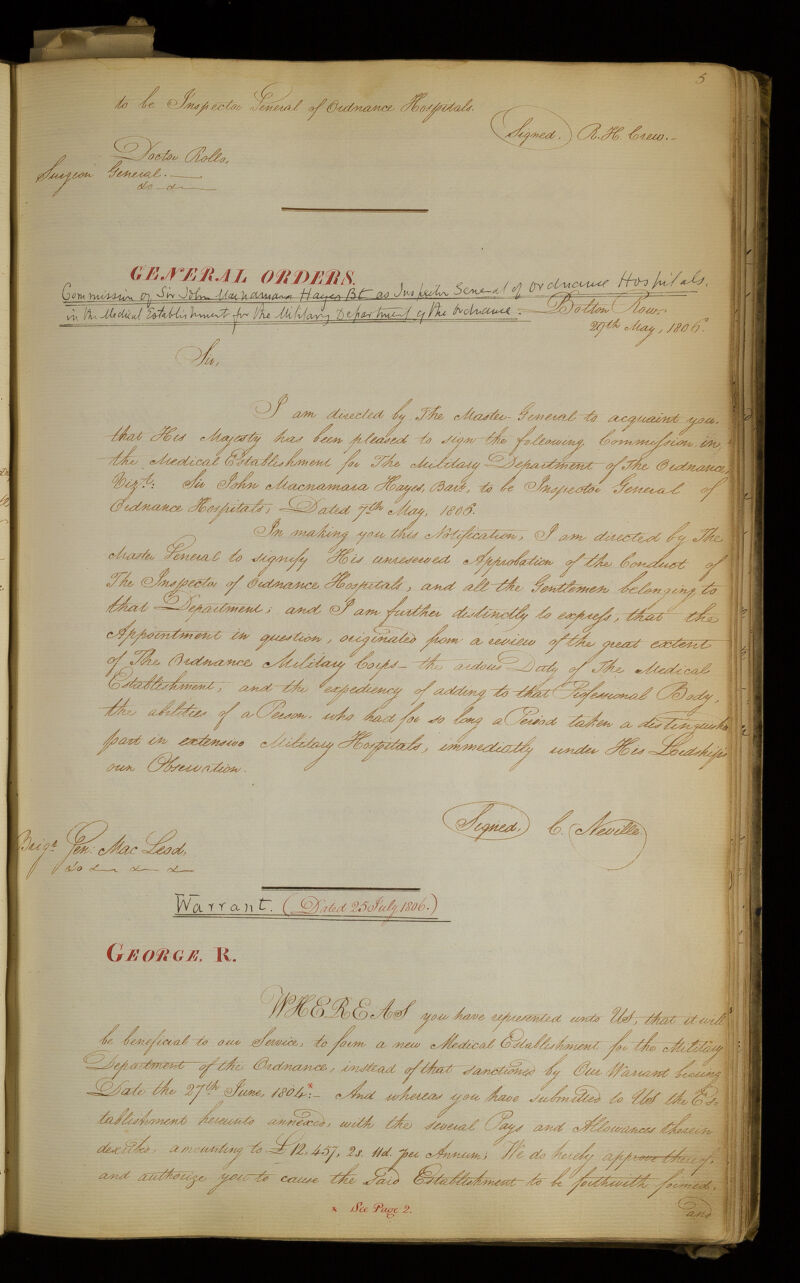 5
to be Inspector General of Ordnance Hospitals.
(Signed.) R. H. Crew.-
Doctor Rollo,
Surgeon General.
do - d-
GENERAL ORDERS.
Commission of Sir John Macnamara Hayes Bt as Inspector General of Ordnance Hospitals,
in the Medical Establishment for the Military Department of the Ordnance.
Bolton Row.
27th May, 1806.
Sir,
I am directed by The Master-General to acquaint you,
that His Majesty has been pleased to sign the following Commission in
the Medical Establishment for The Military Department of The Ordnance,
Vizt: Sir John Macnamara Hayes, Bart, to be Inspector General of
Ordnance Hospitals, - Dated 7th May, 1806.
In making you this Notification, I am directed by The
Master General to signify His unreserved Approbation of the Conduct of
The Inspector of Ordnance Hospitals, and all the Gentlemen belonging to
that Department; and I am further distinctly to express, that the
Appointment in question, originated from a review of the great extent
of The Ordnance Military Corps - the arduous Duty of The Medical
Establishment, and the expediency of adding to that Professional Body,
the abilities of a Person, who had for so long a Period taken a distinguish
part in extensive Military Hospitals, immediately under His Lordship's
own Observation.
(Signed.) C. Neville
Brigr. Gen: Mac Leod,
Warrant. (Dated 25 July, 1806.)
GEORGE. R.
WHEREAS you have represented unto US, that it will
be beneficial to our Service, to form a new Medical Establishment for the Military
Department of the Ordnance, instead of that sanctioned by Our Warrant bearing
Date the 27th June, 1804*:- And whereas you have submitted to US the Es-
tablishment hereunto annexed, with the several Pays and Allowances therein
described, amounting to £12,457. 2s. 11d. per Annum; We do hereby approve thereof,
and authorize you to cause the said Establishment to be forthwith formed,
and
* See Page 2.